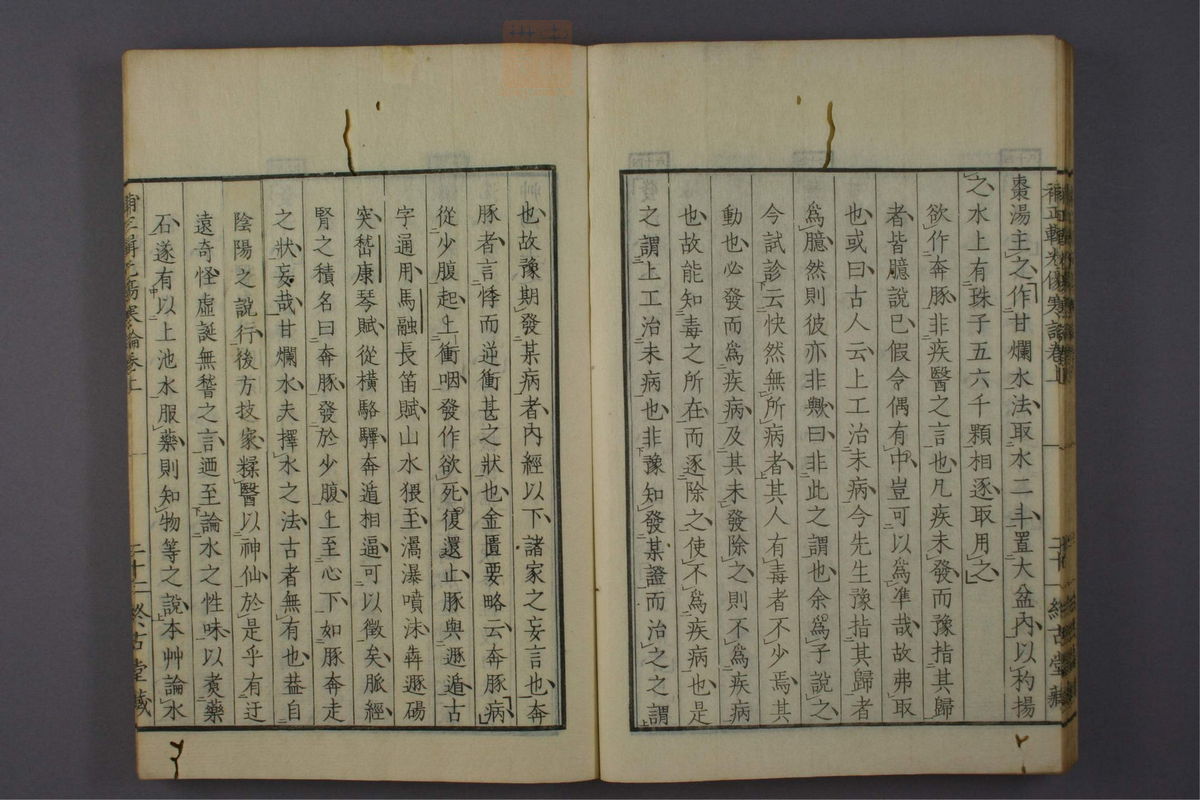 棗湯主之作甘爛水法取水二斗置大盆內以杓揚
之水上有珠子五六千顆相逐取用之
欲作奔豚非疾醫之言也凡疾未發而豫指其歸
者皆臆說已假令偶有中豈可以爲準哉故弗取
也或曰古人云上工治未病今先生豫指其歸者
爲臆然則彼亦非歟曰非此之謂也余爲子說之
今試診云快然無所病者其人有毒者不少焉其
動也必發而爲疾病及其未發除之則不爲疾病
也故能知毒之所在而逐除之使不爲疾病也是
之謂上工治未病也非豫知發某證而治之之謂
也故豫期發某病者內經以下諸家之妄言也奔
豚者言悸而逆衝甚之狀也金匱要略云奔豚病
從少腹起上衝咽發作欲死復還止豚與遯遁古
字通用馬融長笛賦山水猥至渟瀑噴沫犇遯碭
突嵆康琴賦從橫駱驛奔遁相逼可以徵矣脈經
腎之積名曰奔豚發於少腹上至心下如豚奔走
之狀妄哉甘爛水夫擇水之法古者無有也益自
陰陽之說行後方技家糅醫以神仙於是乎有迂
遠奇怪虛誕無嵆之言迺至論水之性味以煑藥
石遂有以上池水服藥則知物等之說本艸論水
二十二 終古堂藏